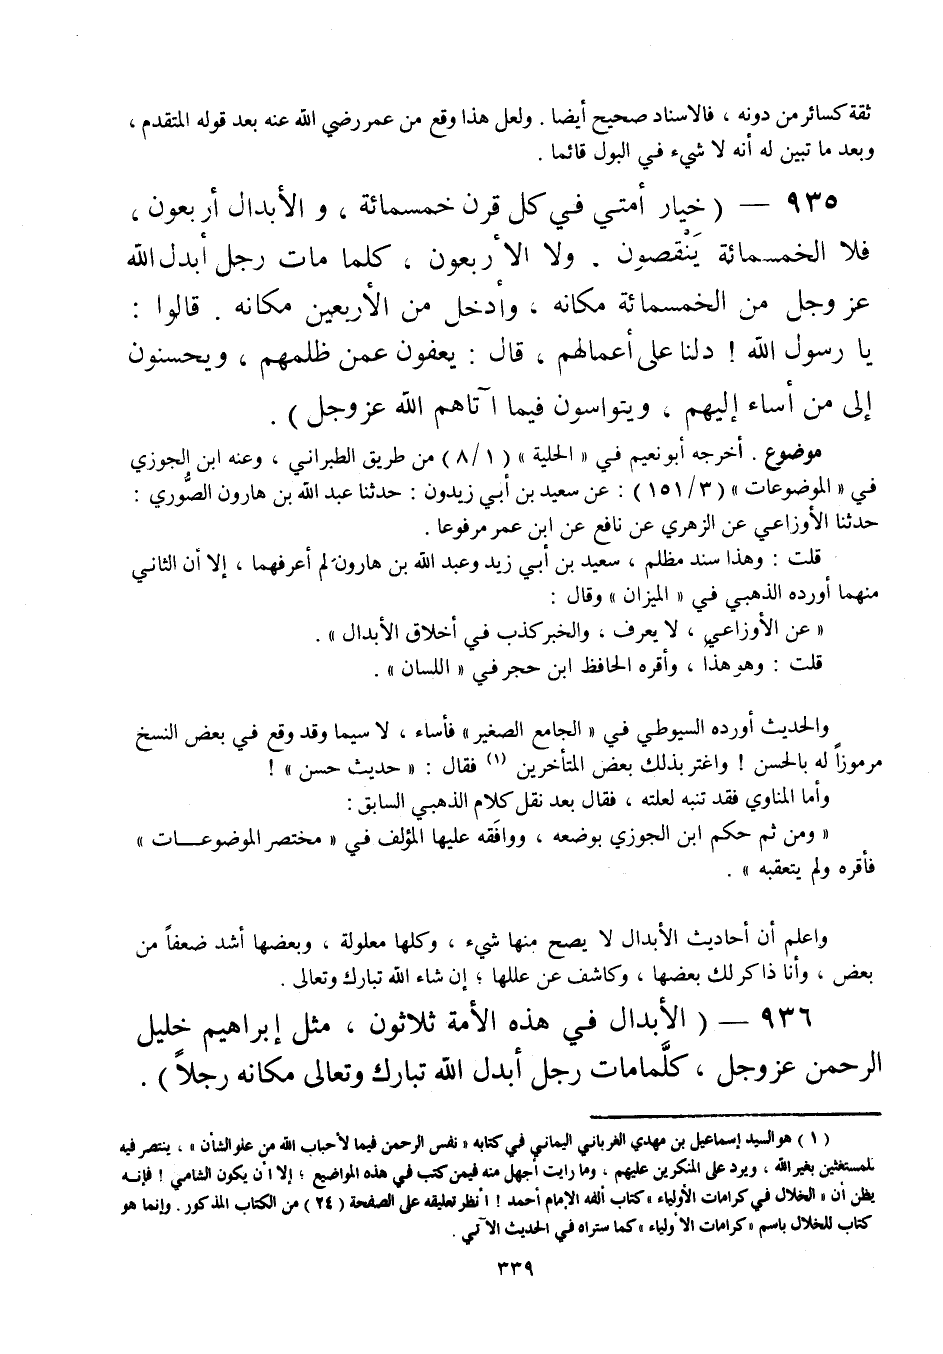 ثقة كسائر من دونه ، فالاسناد صحيح أيضا . ولعل هذا وقع من عمر رضي الله عنه بعد قوله المتقدم ،
وبعد ما تبين له أنه لا شيء في البول قائما .
٩٣٥ — ( خيار أمتي في كل قرن خمسمائة ، و الأبدال أربعون ،
فلا الخمسمائة يَنْقصون . ولا الأربعون ، كلما مات رجل أبدل الله
عز وجل من الخمسمائة مكانه ، وأدخل من الأربعين مكانه . قالوا :
يا رسول الله ! دلنا على أعمالهم ، قال : يعفون عمن ظلمهم ، ويحسنون
إلى من أساء إليهم ، ويتواسون فيما آتاهم الله عز وجل ) .
موضوع . أخرجه أبو نعيم في « الحلية » ( ١/ ٨ ) من طريق الطبراني ، وعنه ابن الجوزي
في « الموضوعات » ( ٣/ ١٥١ ) : عن سعيد بن أبي زيدون : حدثنا عبد الله بن هارون الصُّوري :
حدثنا الأوزاعي عن الزهري عن نافع عن ابن عمر مرفوعا .
قلت : وهذا سند مظلم ، سعيد بن أبي زيد وعبد الله بن هارون لم أعرفهما ، إلا أن الثاني
منهما أورده الذهبي في « الميزان » وقال :
« عن الأوزاعي ، لا يعرف ، والخبر كذب في أخلاق الأبدال » .
قلت : وهو هذا ، وأقره الحافظ ابن حجر في « اللسان » .
والحديث أورده السيوطي في « الجامع الصغير » فأساء ، لا سيما وقد وقع في بعض النسخ
مرموزاً له بالحسن ! واغتر بذلك بعض المتأخرين (١) فقال : « حديث حسن » !
وأما المناوي فقد تنبه لعلته ، فقال بعد نقل كلام الذهبي السابق :
« ومن ثم حكم ابن الجوزي بوضعه ، ووافَقه عليها المؤلف في « مختصر الموضوعـــات »
فأقره ولم يتعقبه » .
واعلم أن أحاديث الأبدال لا يصح منها شيء ، وكلها معلولة ، وبعضها أشد ضعفاً من
بعض ، وأنا ذاكر لك بعضها ، وكاشف عن عللها ؛ إن شاء الله تبارك وتعالى .
٩٣٦ — ( الأبدال في هذه الأمة ثلاثون ، مثل إبراهيم خليل
الرحمن عز وجل ، كلَّمامات رجل أبدل الله تبارك وتعالى مكانه رجلاً ) .
( ١ ) هو السيد إسماعيل بن مهدي الغرباني اليماني في كتابه « نفس الرحمن فيما لأحباب الله من علو الشأن » ، ينتصر فيه
للمستغثين بغير الله ، ويرد على المنكرين عليهم ، وما رايت أجهل منه فيمن كتب في هذه المواضيع ؛ إلا أن يكون الشامي ! فإنه
يظن أن « الخلال في كرامات الأولياء » كتاب ألفه الإمام أحمد ! انظر تعليقه على الصفحة ( ٢٤ ) من الكتاب المذكور . وإنما هو
كتاب للخلال باسم « كرامات الأولياء » كما ستراه في الحديث الآتي .
٣٣٩